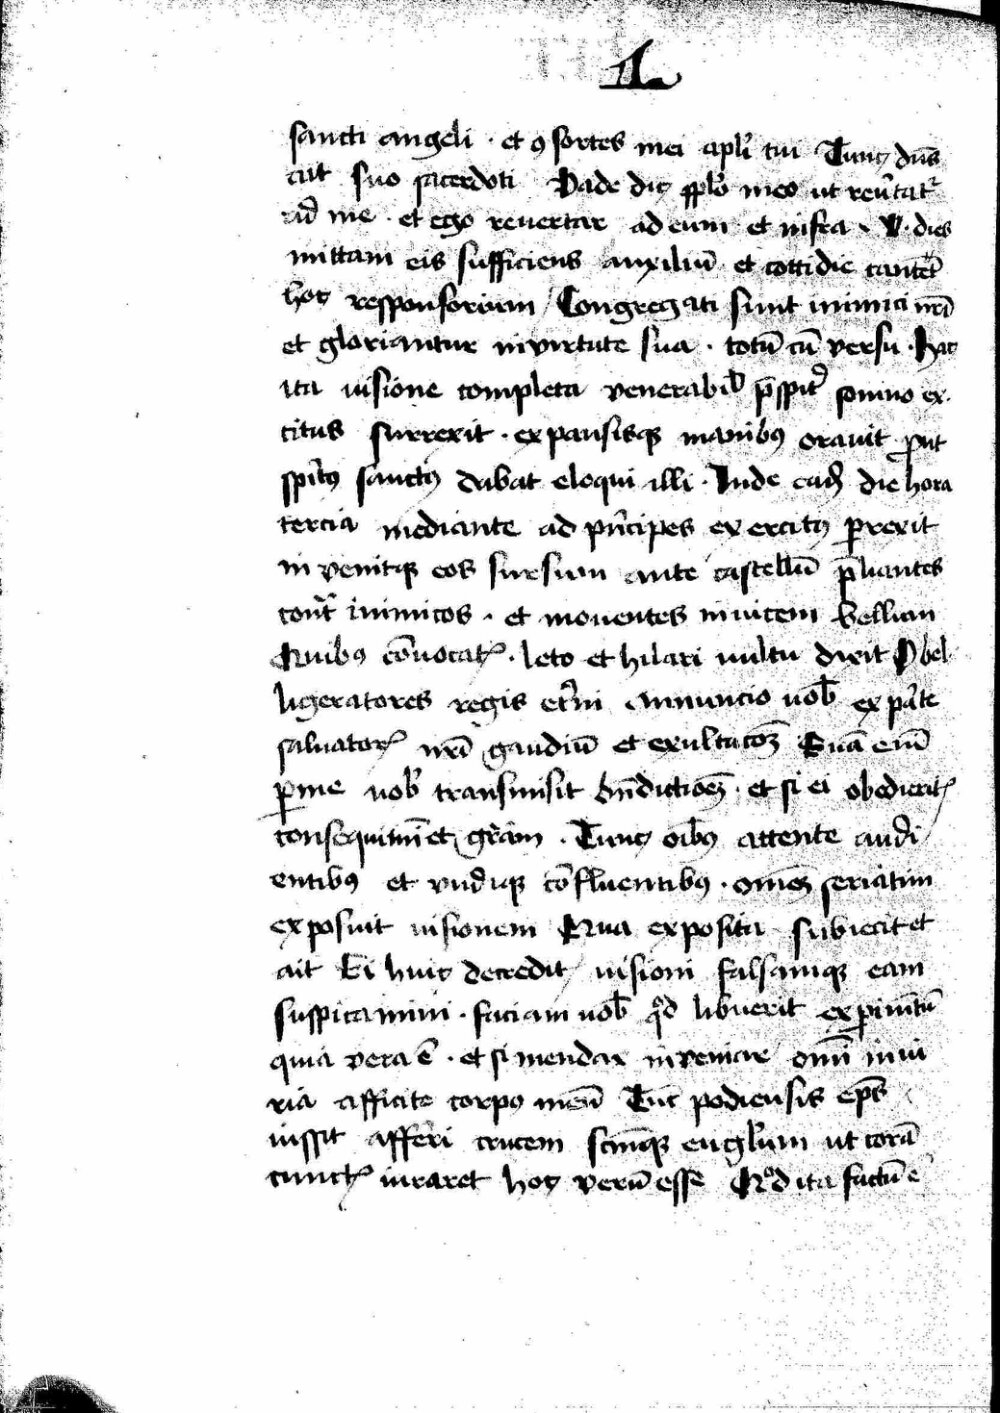 sancti angeli · et ꝯsortes mei apl̓i tui Tunc dn̄s
ait suo sacerdoti Vade dic ppl̓o meo ut reu̓tat᷑
ad me · et ego revertar ad eum et infra · V · dies
mittam eis sufficiens auxiliū et cottidie cantēt
hoc responsorium Congregati sunt inimici nr̄i
et gloriantur in virtute sua · totū cū versu · Hac
ita visione completa venerabil̓ p̄spit̓ somno ex
citus surrexit · expansisqꝫ manibꝰ oravit ꝓut
spir̄tꝰ sanctꝰ dabat eloqui illi · Inde ead̄ die hora
tercia mediante ad pn̓cipes exercitꝰ perrexit
invenitqꝫ eos sursum ante castellū p̄liantes
cont̓ inimicos · et moventes invicem bellum
Quibus cōvocat᷑ · leto et hilari vultu dixit O bel
ligeratores regis et̓ni Annuncio vob̓ ex p̱te
salvator᷑ nr̄i gaudiū et exultac̄oꝫ Suā em̄
ꝑ me vob̓ transmisit bn̄dictioeꝫ · et si ei obedierit᷑
consequimīet gr̄am · Tunc oībꝰ attente audi
entibꝰ et undiqꝫ cōfluentibꝰ · om̄eꝫ seriatim
exposuit visionem Qua exposita subiecit et
ait Si huic decredit᷑ visioni falsamqꝫ eam
suspicamini · faciam vob̓ qͦd libuerit experim̄tū
quia vera ē · et si mendax inveniar om̄i iniu
ria afficite corpꝰ meū Tūc podiensis ep̄s
iussit afferri crucem scm̄qꝫ eugl̓ium ut corā
cunct᷑ iuraret hoc verū esse Qͦd ita factū ē